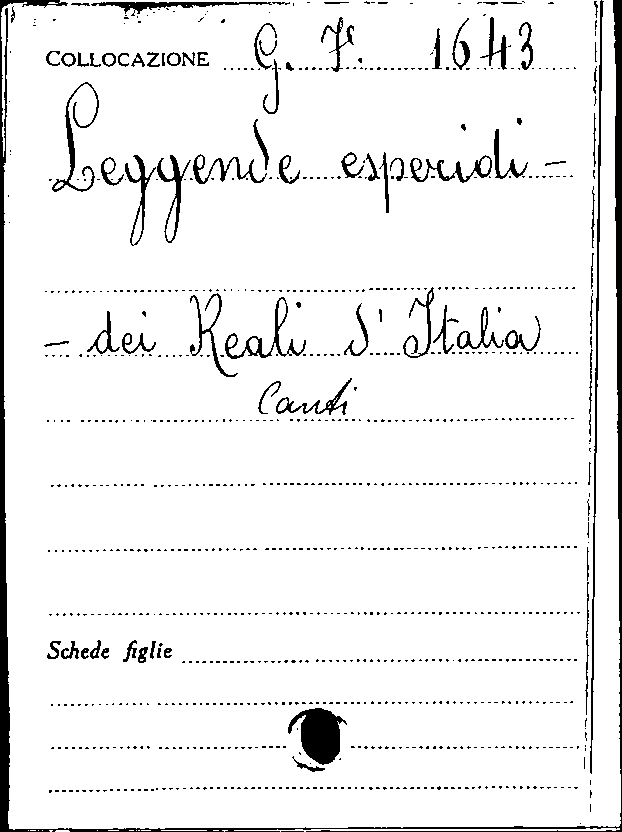 COLLOCAZIONE G. F. 1643
Leggende esperidi -
- dei Reali d' Italia
Canti
Schede figlie